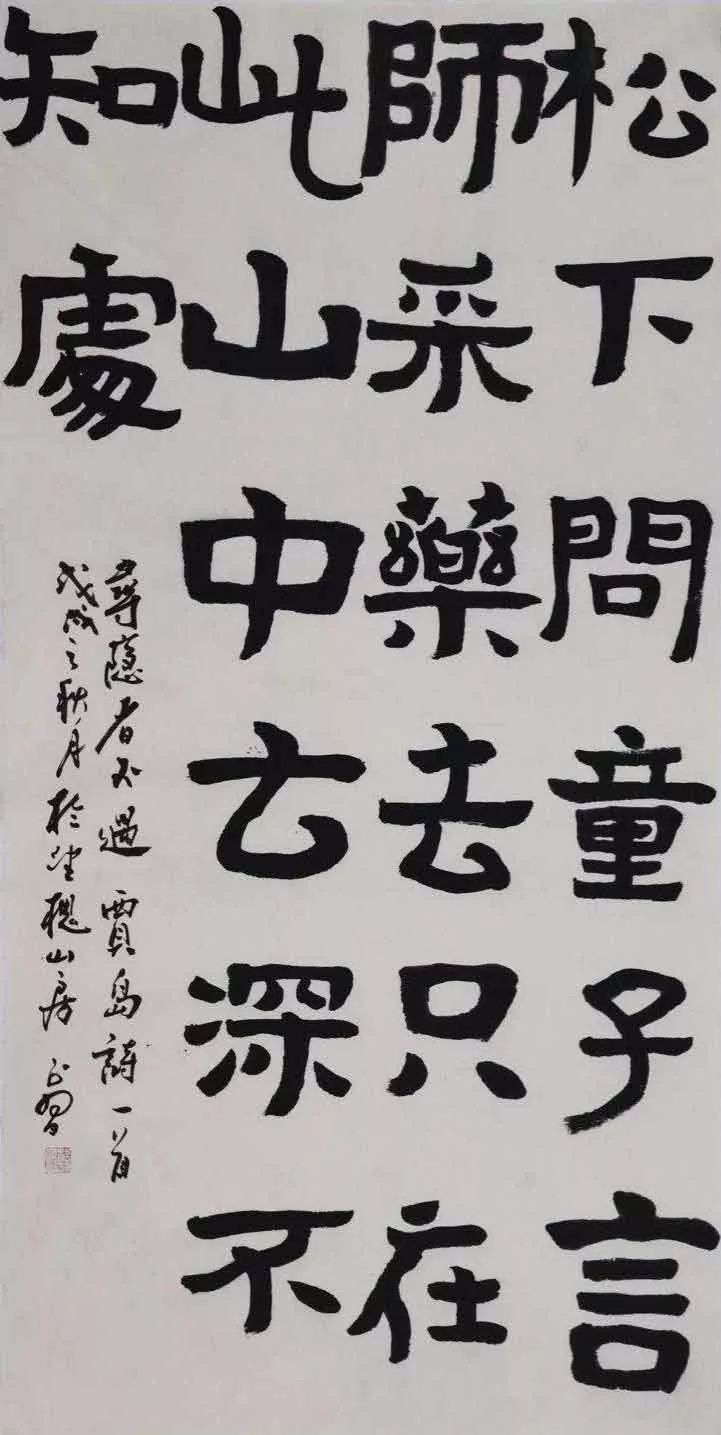 松下問童子言
師采藥去只在
此山中云深不
知處
尋隱者不遇 賈島詩一首
戊戌之秋月於槐山房